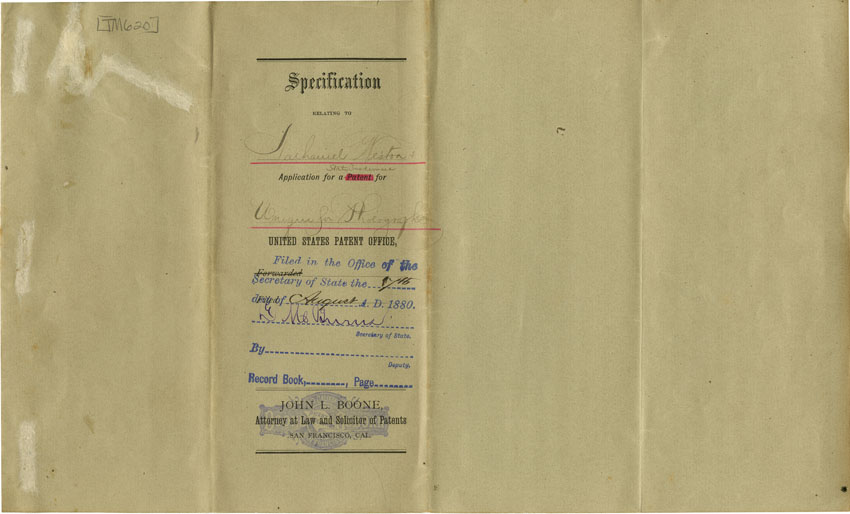 [TM620]
Specification
RELATING TO
Nathaniel Weston's
State Trademark
Application for a Patent for
for Photographers
UNITED STATES PATENT OFFICE,
Filed in the Office of the
Forwarded
Secretary of State the 9th
day of August A. D. 1880.
Secretary of State.
By
Deputy.
Record Book, , Page
JOHN L. BOONE,
Attorney at Law and Solicitor of Patents
SAN FRANCISCO, CAL.